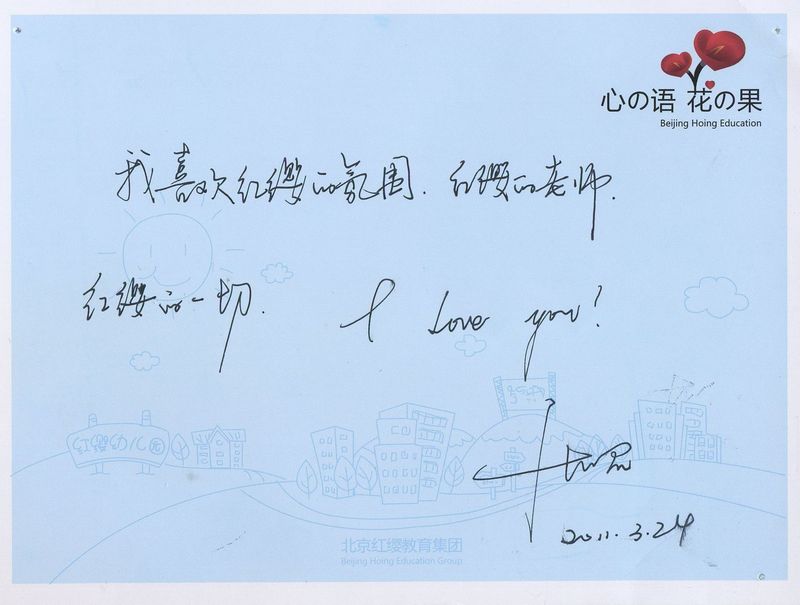 心の语 花の果
Beijing Hoing Education
我喜欢红缨的氛围.红缨的老师.
红缨的一切. I Love you!
红缨幼儿园
2011.3.24
北京红缨教育集团
Beijing Hoing Education Group